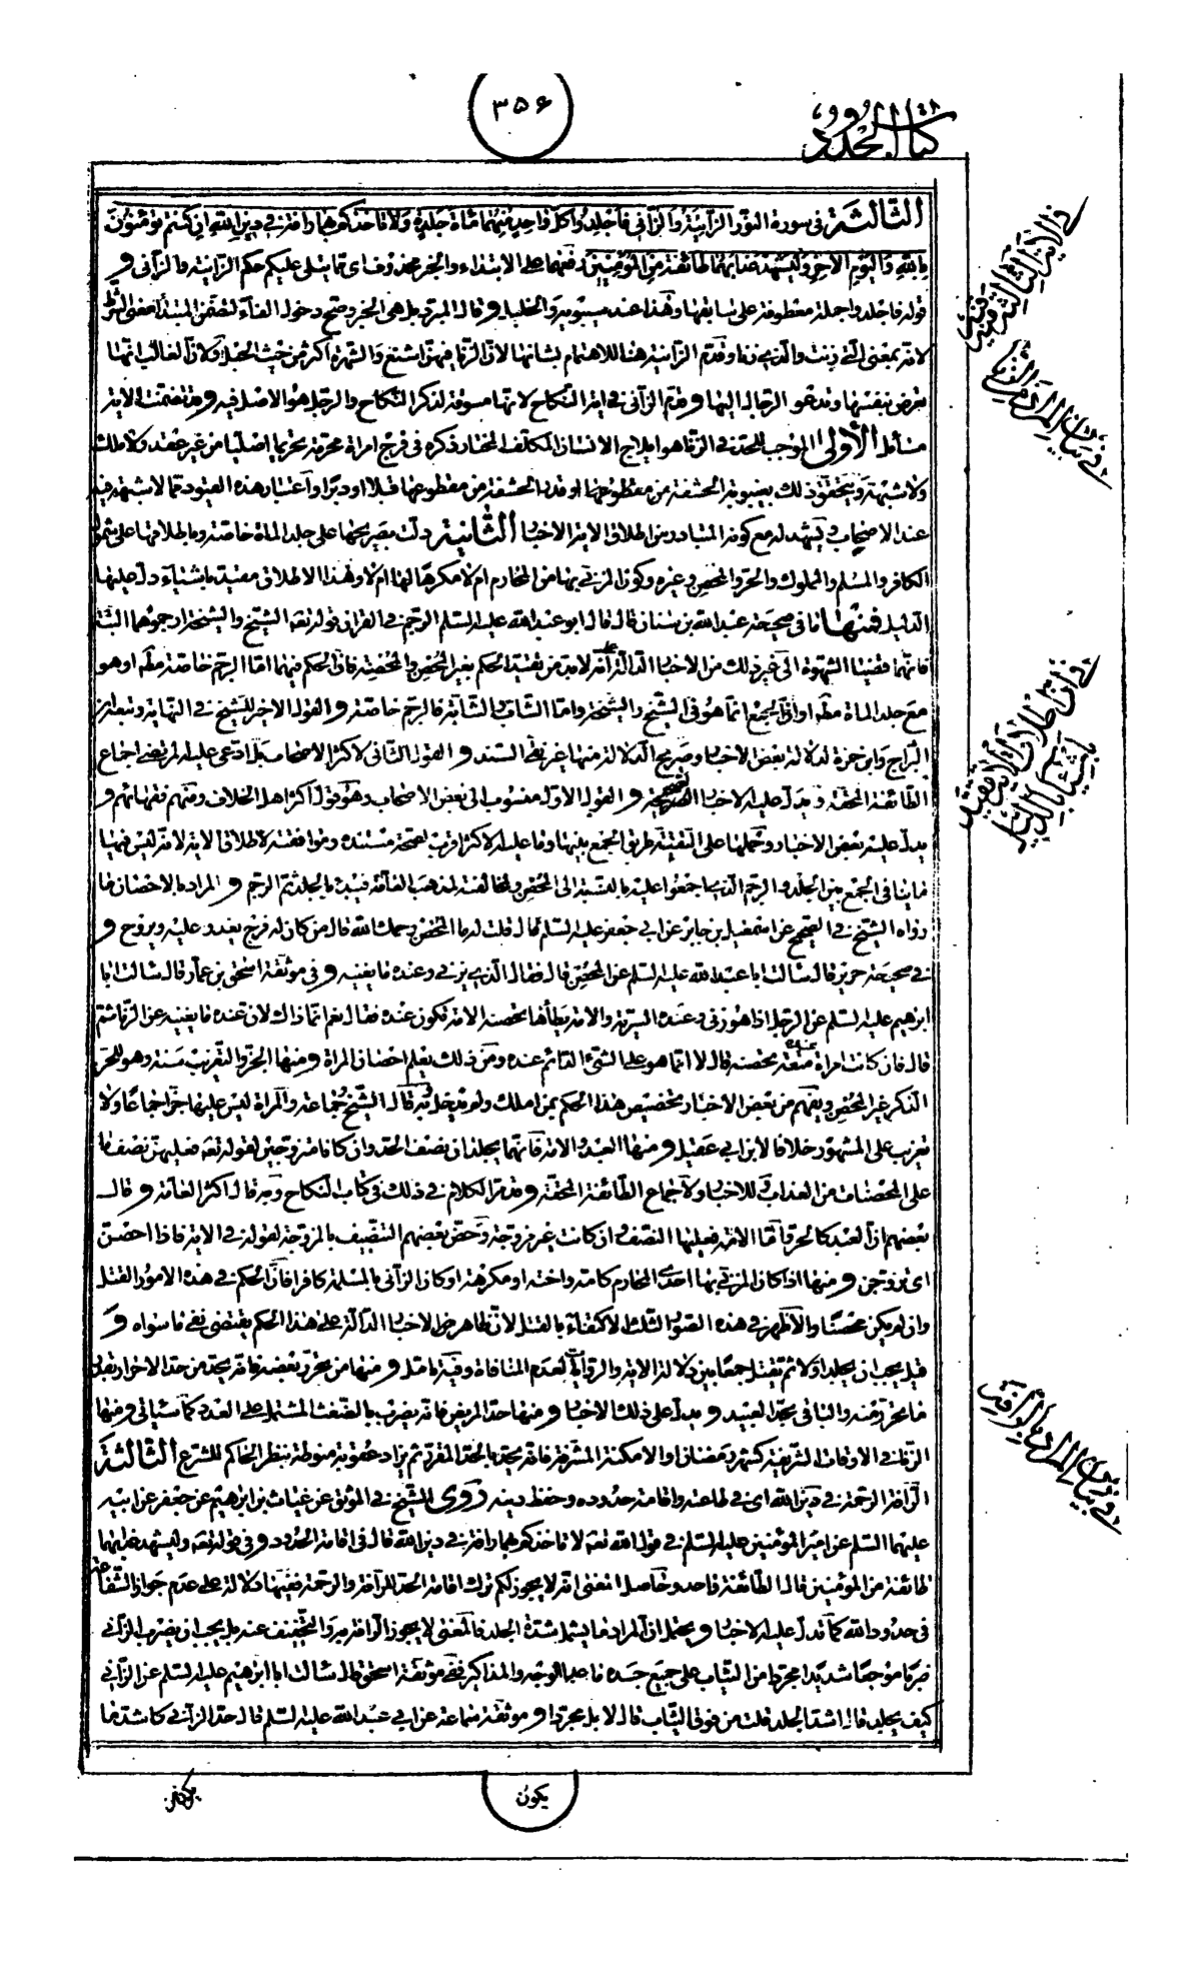 ٣٥٦
كتاب الحدود
الثالثة في سورة النور الزانية والزاني فاجلدوا كل واحد منهما مائة جلدة ولا تاخذكم بهما رافة في دين الله ان كنتم تؤمنون
بالله واليوم الاخر وليشهد عذابهما طائفة من المؤمنين رفعهما على الابتداء والخبر محذوف اي مما يتلى عليكم حكم الزانية والزاني و
قوله فاجلدوا جملة معطوفة على سابقها وهذا عند سيبويه والخليل و قال المبرد بل هي الخبر وصح دخول الفاء لتضمن المبتدا معنى الشرط
لانه بمعنى التي زنت والذي زنا وقدم الزانية هنا للاهتمام بشانها لان الزنا فيهن اشنع والشهوة اكثر من حيث الحبل ولان الغالب انها
تعرض بنفسها وتدعو الرجال اليها و قدم الزاني في اية النكاح لانها مسوقة لذكر النكاح والرجل هو الاصل فيه و قد تضمنت الاية
مسائل الأولى الموجب للحد في الزنا هو ايلاج الانسان المكلف المختار ذكره في فرج امراة محرمة تحريما اصليا من غير عقد ولا ملك
ولا شبهة ويتحقق ذلك بغيبوبة الحشفة من مقطوعها او قدر الحشفة من مقطوعها قبلا او دبرا واعتبار هذه القيود مما لا شبهة فيه
عند الاصحاب ويشهد له مع كونه المتبادر من اطلاق الاية الاخبار الثانية دلت بصريحها على جلد المائة خاصة وباطلاقها على شمول
الكافر والمسلم والمملوك والحر والمحصن وغيره وكون المزني بها من المحارم ام لا مكرها لها ام لا وهذا الاطلاق مقيد باشياء دل عليها
الدليل فمنها ما في صحيحة عبد الله بن سنان قال قال ابو عبد الله عليه السلم الرجم في القران قوله تعه الشيخ والشيخة ارجموهما البتة
فانهما قضيا الشهوة الى غير ذلك من الاخبار الدالة على انه لابد من تقييد الحكم بغير المحصن والمحصنة فان الحكم فيهما اما الرجم خاصة مطه او هو
مع جلد المائة مطه او ان الجمع انما هو في الشيخ والشيخة واما الشاب والشابة فالرجم خاصة و القول الاخير للشيخ في النهاية وتبعه ابن
البراج وابن حمزة لدلالة بعض الاخبار وصريح الدلالة منها غير نقي السند و القول الثاني لاكثر الاصحاب بل ادعى عليه المرتضى اجماع
الطائفة المحقة ويدل عليه الاخبار الصحيحة و القول الاول منسوب الى بعض الاصحاب وهو قول اكثر اهل الخلاف ومنهم فقهائهم و
يدل عليه بعض الاخبار وحملها على التقية طريق الجمع بينها وما عليه الاكثر اقرب لصحة مستنده وموافقته لاطلاق الاية لانه ليس فيها
ما ينافي الجمع بين الجلد والرجم الذي اجمعوا عليه بالنسبة الى المحصن ولمخالفته لمذهب العامة فيبدء بالجلد ثم الرجم و المراد بالاحصان ما
رواه الشيخ في الصحيح عن اسمعيل بن جابر عن ابي جعفر عليه السلم قال قلت له ما المحصن رحمك الله قال من كان له فرج يغدو عليه ويروح و
في صحيحة حريز قال سالت ابا عبد الله عليه السلم عن المحصن قال فقال الذي يزني وعنده ما يغنيه و في موثقة اسحق بن عمار قال سالت ابا
ابرهيم عليه السلم عن الرجل اذا هو زنى وعنده السرية والامة يطأها تحصنه الامة تكون عنده فقال نعم انما ذاك لان عنده ما يغنيه عن الزنا ثم
قال فان كانت امراة متعة تحصنه قال لا انما هو على الشيء الدائم عنده ومن ذلك يعلم احصان المراة و منها الجز والتغريب سنة وهو للحر
الذكر غير المحصن ويفهم من بعض الاخبار تخصيص هذا الحكم بمن املك ولم يدخل وبه قال الشيخ وجماعة والمراة ليس عليها جز اجماعا ولا
تغريب على المشهور خلافا لابن ابي عقيل و منها العبد والامة فانهما يجلدان نصف الحد وان كانا متزوجين لقوله تعه فعليهن نصف ما
على المحصنات من العذاب وللاخبار ولاجماع الطائفة المحقة و قد مر الكلام في ذلك في كتاب النكاح وبه قال اكثر العامة و قال
بعضهم ان العبد كالحر واما الامة فعليها النصف ان كانت غير مزوجة وخص بعضهم التنصيف بالمزوجة لقوله في الاية فاذا احصن
اي تزوجن و منها اذا كان المزني بها احدى المحارم كامه واخته او مكرهة او كان الزاني بالمسلمة كافرا فان الحكم في هذه الامور القتل
وان لم يكن محصنا والاظهر في هذه الصور الثلث الاكتفاء بالقتل لان ظاهر الاخبار الدالة على هذا الحكم يقتضي نفي ما سواه و
قيل يجب ان يجلد اولا ثم يقتل جمعا بين دلالة الاية والروايات لعدم المنافاة وفيه تامل و منها من تحرر بعضه فانه يحد من حد الاحرار بقدر
ما تحرر منه والباقي بحد العبيد و يدل على ذلك الاخبار و منها حد المريض فانه يضرب بالضغث المشتمل على العدد كما سياتي و منها
الزنا في الاوقات الشريفة كشهر رمضان او الامكنة المشرفة فانه يحد بالحد المقرر ثم يزاد عقوبة منوطة بنظر الحاكم للشرع الثالثة
الرافة الرحمة في دين الله اي في طاعته واقامة حدوده وحفظ دينه روى الشيخ في الموثق عن غياث بن ابراهيم عن جعفر عن ابيه
عليهما السلم عن امير المؤمنين عليه السلم في قول الله تعه لا تاخذكم بهما رافة في دين الله قال في اقامة الحدود و في قوله تعه وليشهد عذابهما
طائفة من المؤمنين قال الطائفة واحد وحاصل المعنى انه لا يجوز لكم ترك اقامة الحد للرافة والرحمة ففيها دلالة على عدم جواز الشفاعة
في حدود الله كما تدل عليه الاخبار و يحتمل ان المراد ما يشمل شدة الجلد فالمعنى لا يجوز الرافة به والتخفيف عنه بل يجب ان يضرب الزاني
ضربا موجعا شديدا مجردا من الثياب على جميع جسده ما عدا الوجه والمذاكير ففي موثقة اسحق قال سالت ابا ابرهيم عليه السلم عن الزاني
كيف يجلد قال اشد الجلد قلت من فوق الثياب قال لا بل مجردا و موثقة سماعة عن ابي عبد الله عليه السلم قال حد الزاني كاشد ما
يكون